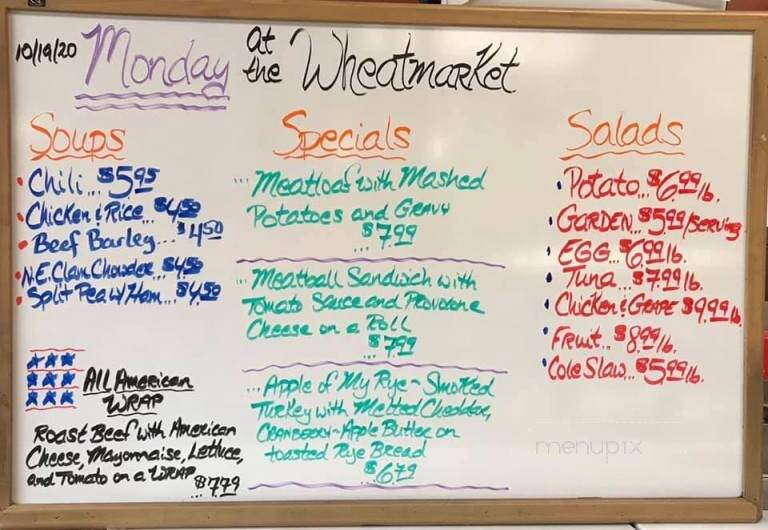 10/19/20 Monday at the Wheatmarket
Soups
• Chili... $5.95
• Chicken & Rice... $4.50
• Beef Barley... $4.50
• N.E. Clam Chowder... $4.50
• Split Pea w/ Ham... $4.50
All American
Wrap
Roast Beef with American
Cheese, Mayonnaise, Lettuce,
and Tomato on a Wrap
$7.79
Specials
... Meatloaf with Mashed
Potatoes and Gravy
... $7.99
... Meatball Sandwich with
Tomato Sauce and Provorone
Cheese on a Roll
... $7.99
... Apple of My Rye ~ Smoked
Turkey with Melted Cheddar,
Cranberry-Apple Butter on
toasted Rye Bread
... $6.79
Salads
• Potato... $6.99 lb.
• GARDEN... $5.99/serving
• EGG... $6.99 lb.
• Tuna... $7.99 lb.
• Chicken & Grape $9.99 lb.
• Fruit... $8.99 lb.
• Cole Slaw... $5.99 lb.
menupix